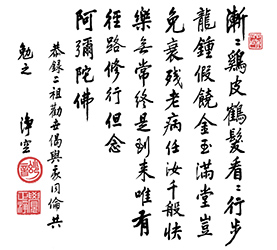 漸〻鷄皮鶴髮看〻行步
龍鍾假饒金玉滿堂豈
免衰残老病任汝千般快
樂無常終是到来唯有
徑路修行但念
阿彌陀佛
恭錄二祖勸世偈與衆同倫共
勉之 淨空